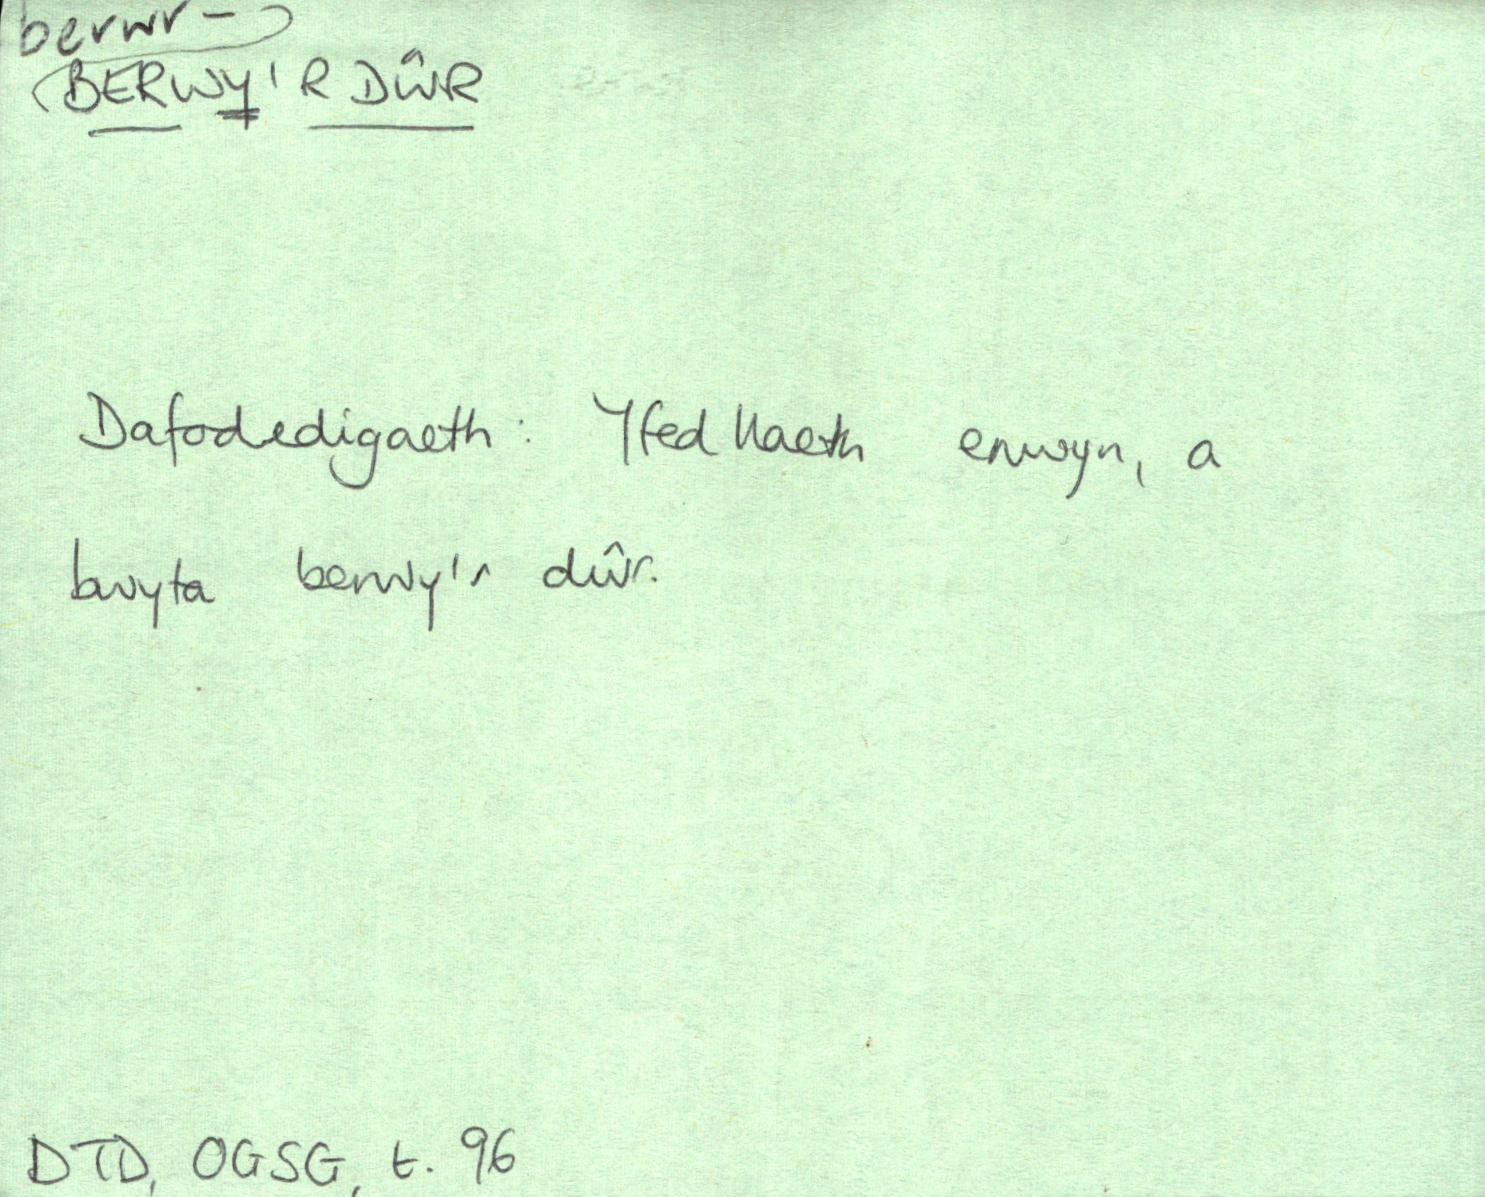 berwr-
BERWY'R DŴR
Dafodedigaeth: Yfed llaeth enwyn, a
bwyta berwy'r dŵr.
DTD, OGSG, t. 96